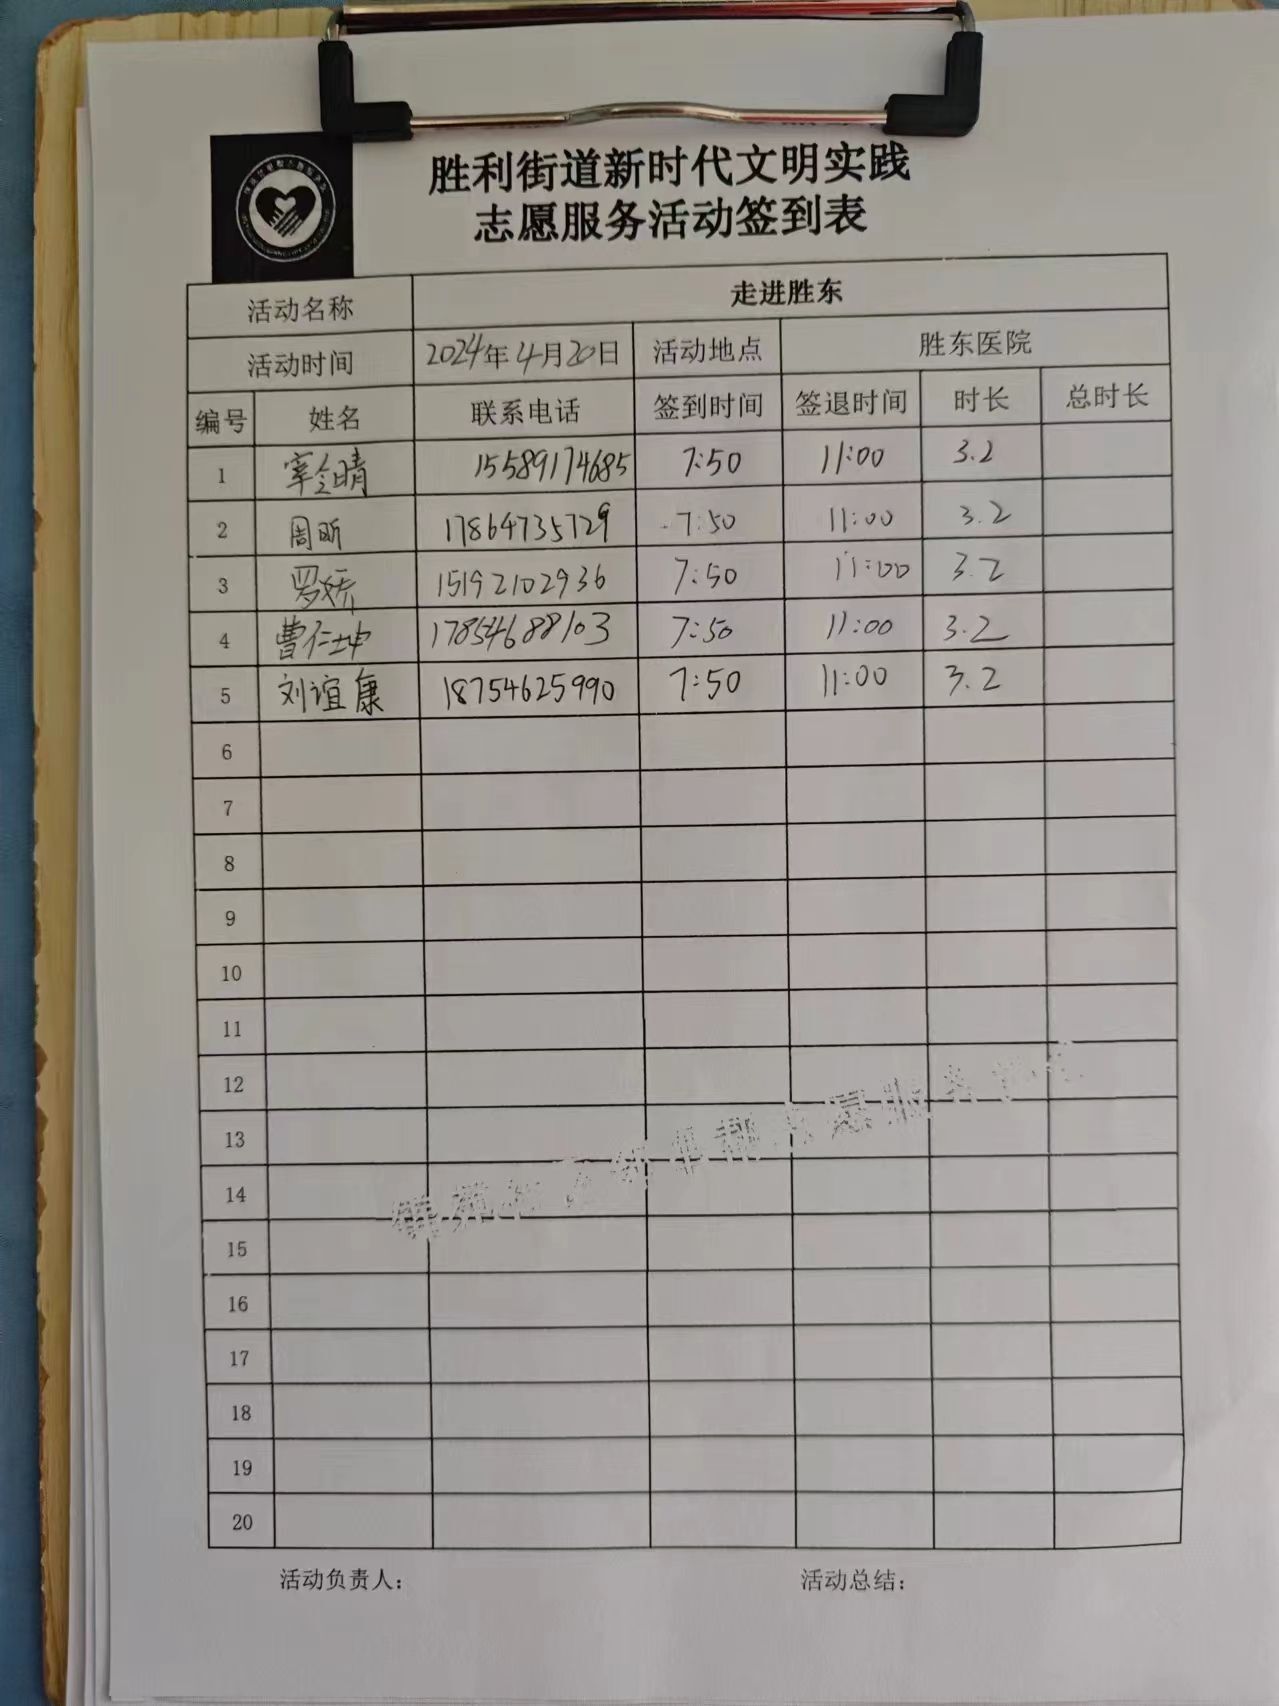 胜利街道新时代文明实践
志愿服务活动签到表
活动名称 走进胜东
活动时间 2024年4月20日 活动地点 胜东医院
编号 姓名 联系电话 签到时间 签退时间 时长 总时长
1 晴 15589174685 7:50 11:00 3.2
2 周昕 17864735729 7:50 11:00 3.2
3 罗娇 15192102936 7:50 11:00 3.2
4 曹仁坤 17854688103 7:50 11:00 3.2
5 刘谊康 18754625990 7:50 11:00 3.2
6
7
8
9
10
11
12
13
14
15
16
17
18
19
20
活动负责人： 活动总结：